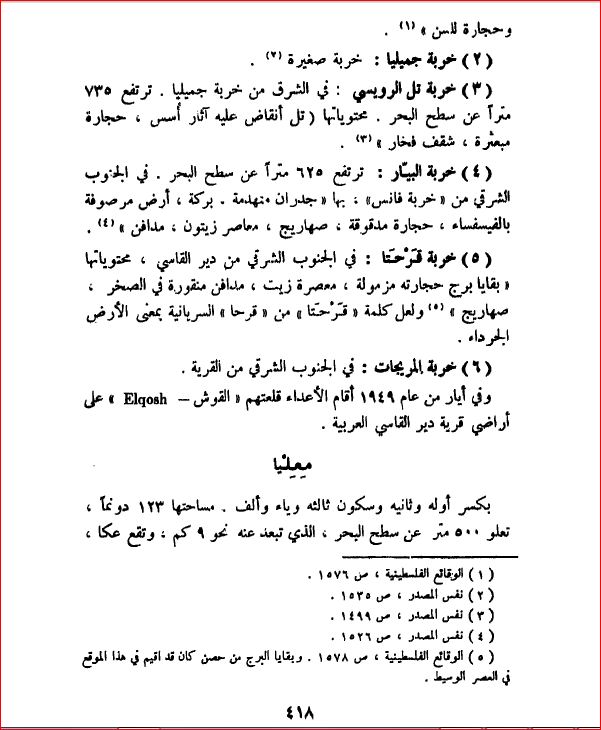 وحجارة للسن » (١) .
( ٢ ) خربة جميليا : خربة صغيرة (٢) .
( ٣ ) خربة تل الرويسي : في الشرق من خربة جميليا . ترتفع ٧٣٥
متراً عن سطح البحر . محتوياتها ( تل أنقاض عليه آثار أُسس ، حجارة
مبعثرة ، شقف فخار » (٣) .
( ٤ ) خربة البيّار : ترتفع ٦٢٥ متراً عن سطح البحر . في الجنوب
الشرقي من « خربة فانس» ، بها « جدران منهدمة . بركة ، أرض مرصوفة
بالفيسفساء ، حجارة مدقوقة ، صهاريج ، معاصر زيتون ، مدافن » (٤) .
( ٥ ) خربة قَرْحَتا : في الجنوب الشرقي من دير القاسي ، محتوياتها
« بقايا برج حجارته مزمولة ، معصرة زيت ، مدافن منقورة في الصخر ،
صهاريج » (٥) ولعل كلمة « قَرْحَتا » من « قرحا » السريانية بمعنى الأرض
الجرداء .
( ٦ ) خربة المريجات : في الجنوب الشرقي من القرية .
وفي أيار من عام ١٩٤٩ أقام الأعداء قلعتهم « القوش – Elqosh » على
أراضي قرية دير القاسي العربية .
مِعِلْيا
بكسر أوله وثانيه وسكون ثالثه وياء وألف . مساحتها ١٢٣ دونماً ،
تعلو ٥٠٠ متر عن سطح البحر ، الذي تبعد عنه نحو ٩ كم ، وتقع عكا ،
( ١ ) الوقائع الفلسطينية ، ص ١٥٧٦ .
( ٢ ) نفس المصدر ، ص ١٥٣٥ .
( ٣ ) نفس المصدر ، ص ١٤٩٩ .
( ٤ ) نفس المصدر ، ص ١٥٢٦ .
( ٥ ) الوقائع الفلسطينية ، ص ١٥٧٨ . وبقايا البرج من حصن كان قد اقيم في هذا الموقع
في العصر الوسيط .
٤١٨